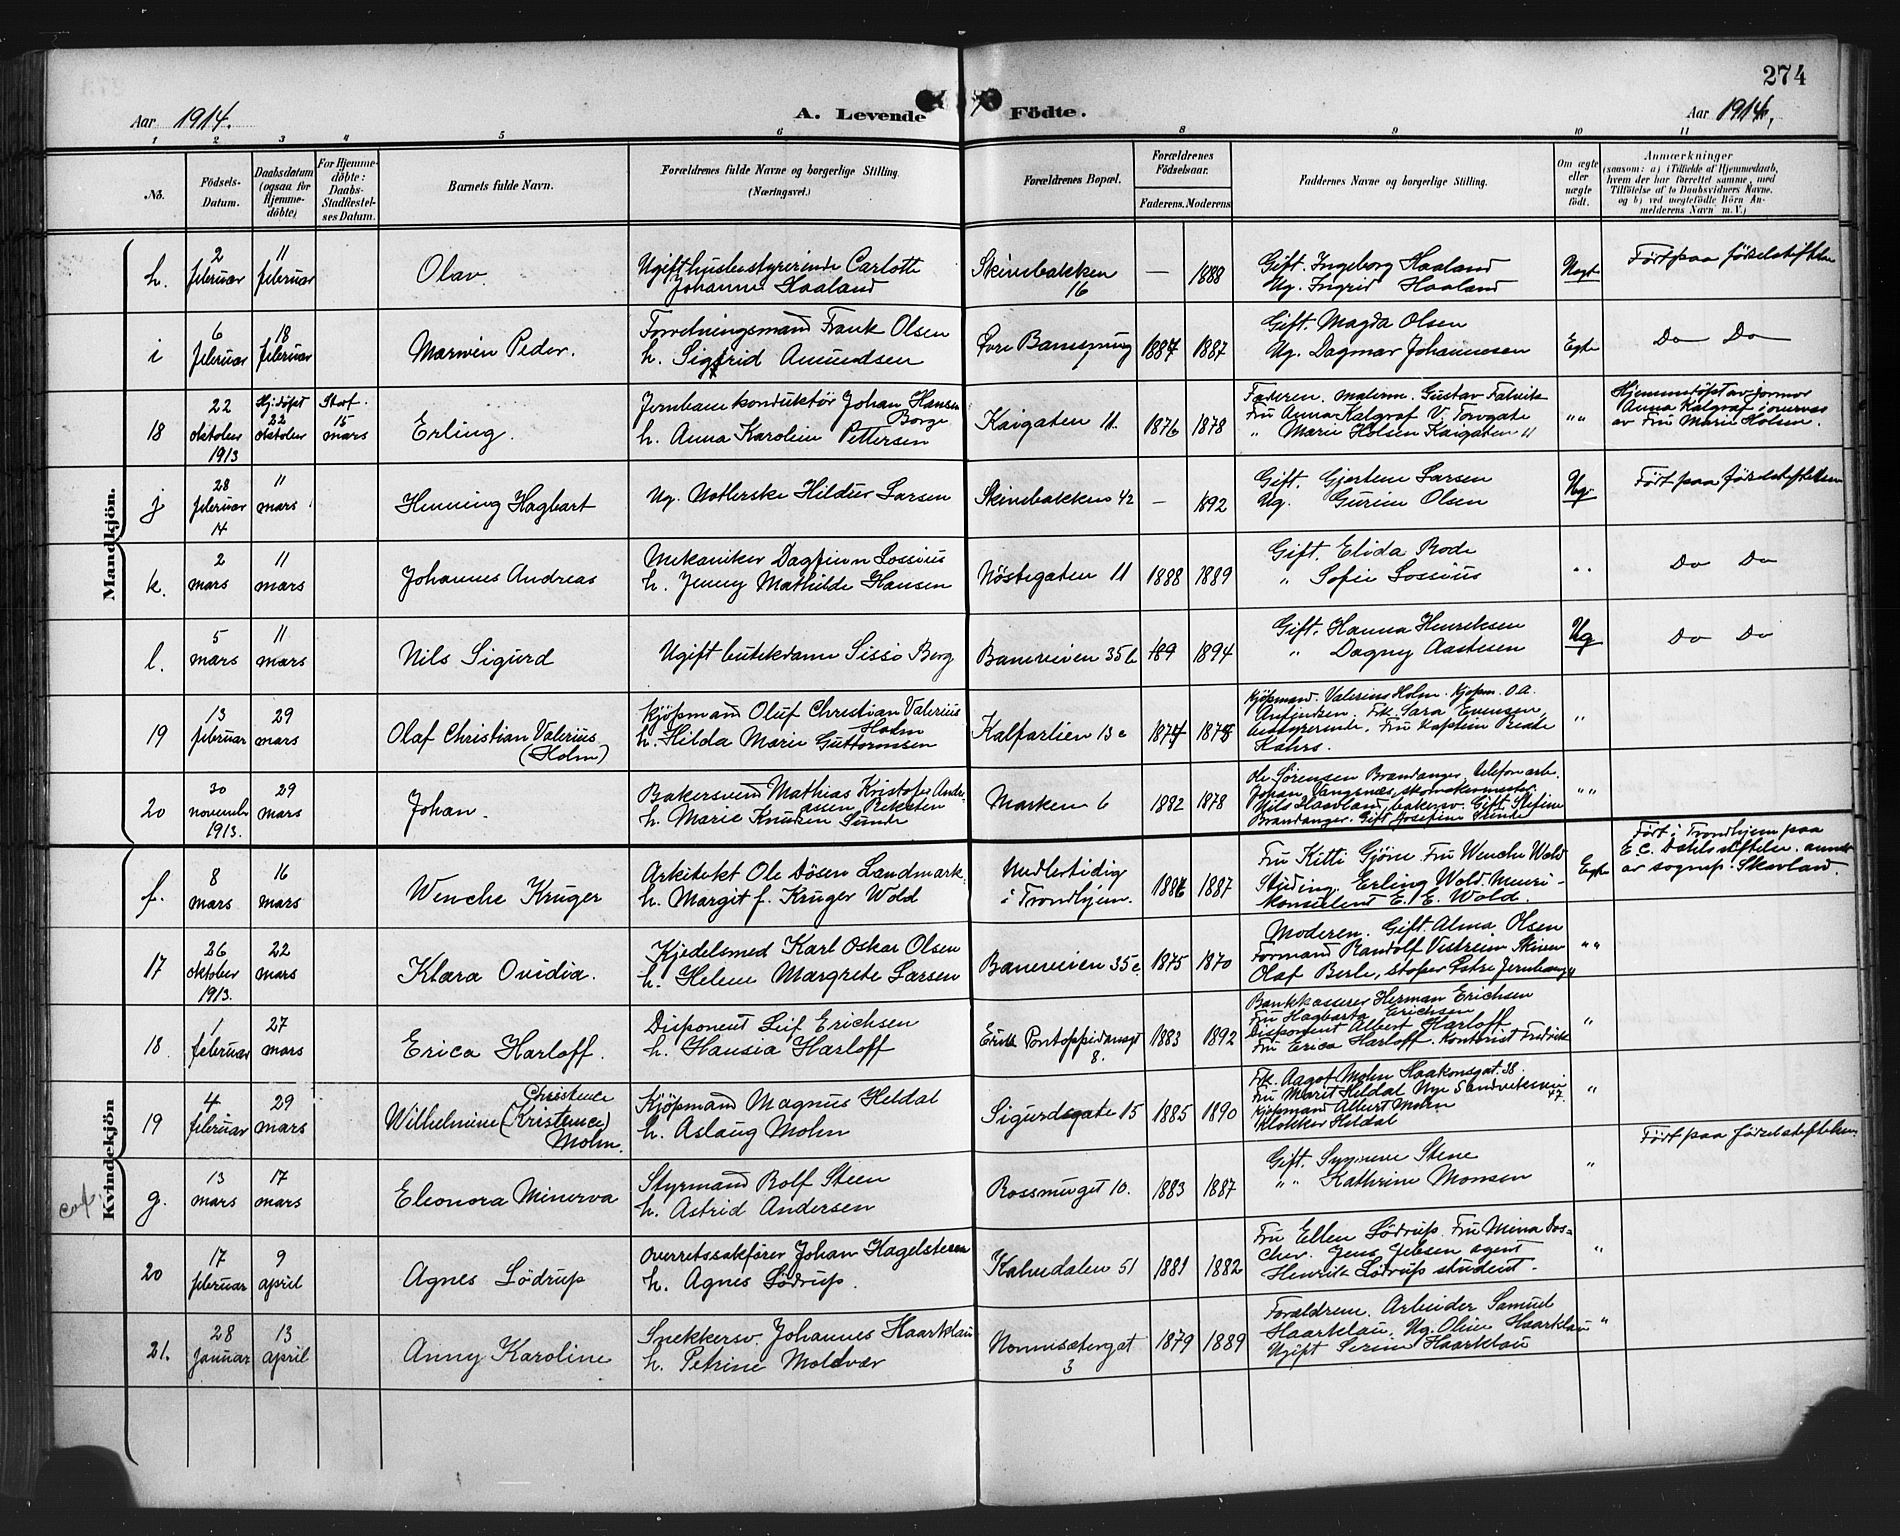 274
Aar 1914. A. Levende Födte. Aar 1914,
1 2 3 4 5 6 8 9 10 11
No. Födsels-Datum. Daabsdatum (ogsaa for Hjemmedöbte) For Hjemmedöbte: Daabs-Stadfæstelses Datum. Barnets fulde Navn. Forældrenes fulde Navne og borgerlige Stilling. (Næringsvei.) Forældrenes Bopæl. Forældrenes Födselsaar. Faderens. Moderens Faddernes Navne og borgerlige Stilling. Om ægte eller uægte födt. Anmærkninger (saasom: a) i Tilfælde af Hjemmedaab, hvem der har forrettet samme, med Tilföielse af to Daabsvidners Navne, og b) ved uegtefödte Börn Anmelderens Navn m. V.)
Mandkjön.
h. 2 februar 11 februar Olav. Ugift husbestyrerinde Carlotte Johanne Haaland Skivebakken 16 — 1888 Gift. Ingeborg Haaland Ug. Ingrid Haaland Uegt Født paa fødselsstiftelsen
i 6 februar 18 februar Marwin Peder. Forretningsmand Frank Olsen h. Sigfrid Amundsen Øvre Banesmug 1887 1887 Gift. Magda Olsen Ug. Dagmar Johannesen Egte Do Do
18 22 oktober 1913 Hj.døpt 22 oktober Staf. 15 mars Erling. Jernbanekonduktör Johan Hansen Borge h. Anna Karoline Pettersen Kaigaten 11. 1876 1878 Faderen. Malerm. Gustav Falvik Fru Anna Kalgraf V. Torvgate " Marie Holsen Kaigaten 11 " " Hjemmedöpt av jormor Anna Kalgraf i overvær av Fru Marie Holsen.
j 28 februar 14 11 mars Henning Hagbart Ug. Notlerske Hildur Larsen Skivebakken 42 — 1892 Gift. Gjertine Larsen Ug. Gurine Olsen Ug. Født paa fødselsstiftelsen
k. 2 mars 11 mars Johannes Andreas Mekaniker Dagfinn Lossius h. Jenny Mathilde Hansen Nöstegaten 11 1888 1889 Gift. Elida Rode " Sofie Lossius " " Do Do
l. 5 mars 11 mars Nils Sigurd Ugift butikdame Sissi Berg Baneveien 35 b 189 1894 Gift. Hanna Henriksen " Dagny Aastesen Ug Do Do
19 13 februar 29 mars Olaf Christian Valerius (Holm) Kjöpmand Oluf Christian Valerius Holm h. Hilda Marie Guttormsen Kalfarlien 13 c 1874 1878 Kjöpmand. Valerius Holm. Kjøpm. O A. Anfindsen. Frk. Sara Evensen, bestyrerinde. Fru Kaptein Beate Kahrs. "
20 30 november 1913. 29 mars Johan. Bakersvend Mathias Kristofer Andreassen Reksten h. Marie Knutsen Sunde Marken 6 1882 1878 Ole Sørensen Brandanger, telefonarb. Johan Vangsnæs, skomakermester. Nils Haavland, bakersv. Gift Stefine Brandanger. Gift Josefine Sunde " "
Kvindekjön
f. 8 mars 16 mars Wenche Krüger Arkitekt Ole Dösen Landmark. h. Margit f. Krüger Wold Midlertidig i Trondhjem. 1886 1887 Fru Kitti Gjörne. Fru Wenche Wold Studing. Erling Wold. Meierikonsulent E. E. Wold. Egte Födt i Trondhjem paa E. C. Dahls stiftelse. anmdt av sognep. Skavland.
17 26 oktober 1913. 22 mars Klara Ovidia. Kjedelsmed Karl Oskar Olsen h. Helene Margrete Larsen Baneveien 35 c. 1875 1870 Moderen. Gift. Alma Olsen Formand Randolf Vistreim Skiven Olaf Berle, støper Østre Jernbaneg. " "
18 1 februar 27 mars Erica Harloff. Disponent Leif Erichsen h. Hansia Harloff Erik Pontoppidansgt 8. 1883 1892 Bankkasserer Herman Erichsen Fru Hagbarta Erichsen Disponent Albert Harloff Fru Erica Harloff. Kontorist Fredrik "
19 4 februar 29 mars Wilhelmine (Kristence) Christence Mohn. Kjöpmand Magnus Heldal h. Aslaug Mohn Sigurdsgate 15 1885 1890 Frk. Aagot Mohn Haakonsgat. 38 Fru Marit Heldal Nye Sandviksvei 47. Kjöpmand Albert Mohn Klokker Heldal "
g. 13 mars 17 mars Eleonora Minerva Styrmand Rolf Steen h. Astrid Andersen Rossmuget 10. 1883 1887 Gift. Synneve Stene " " Kathrine Monsen " Født paa fødselsstiftelsen.
20 17 februar 9 april Agnes Lödrup Overretssakfører Johan Hagelsteen h. Agnes Lödrup. Kalvedalen 51 1881 1882 Fru Ellen Lödrup. Fru Mina Doscher. Jens Jebsen agent Henrik Lödrup student. "
21. 28 januar 13 april Anny Karoline Snekkersv. Johannes Haarklau h. Petrine Moldvær Nonnesætergat 3 1879 1889 Forældrene. Arbeider Samuel Haarklau. Ug. Oline Haarklau Ugift Serine Haarklau "